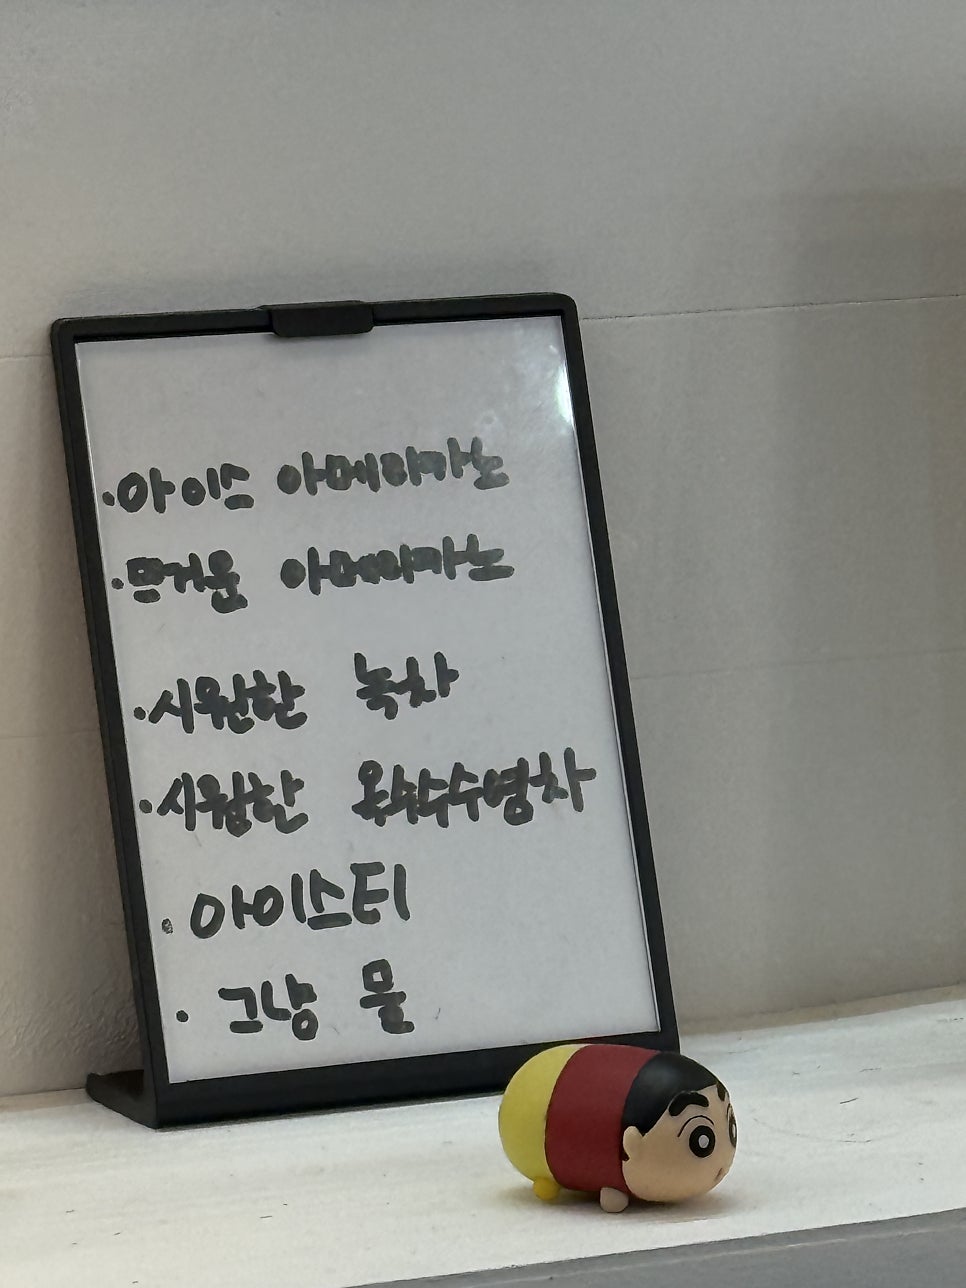 ·아이스 아메리카노
·뜨거운 아메리카노
·시원한 녹차
·시원한 옥수수수염차
·아이스티
·그냥 물